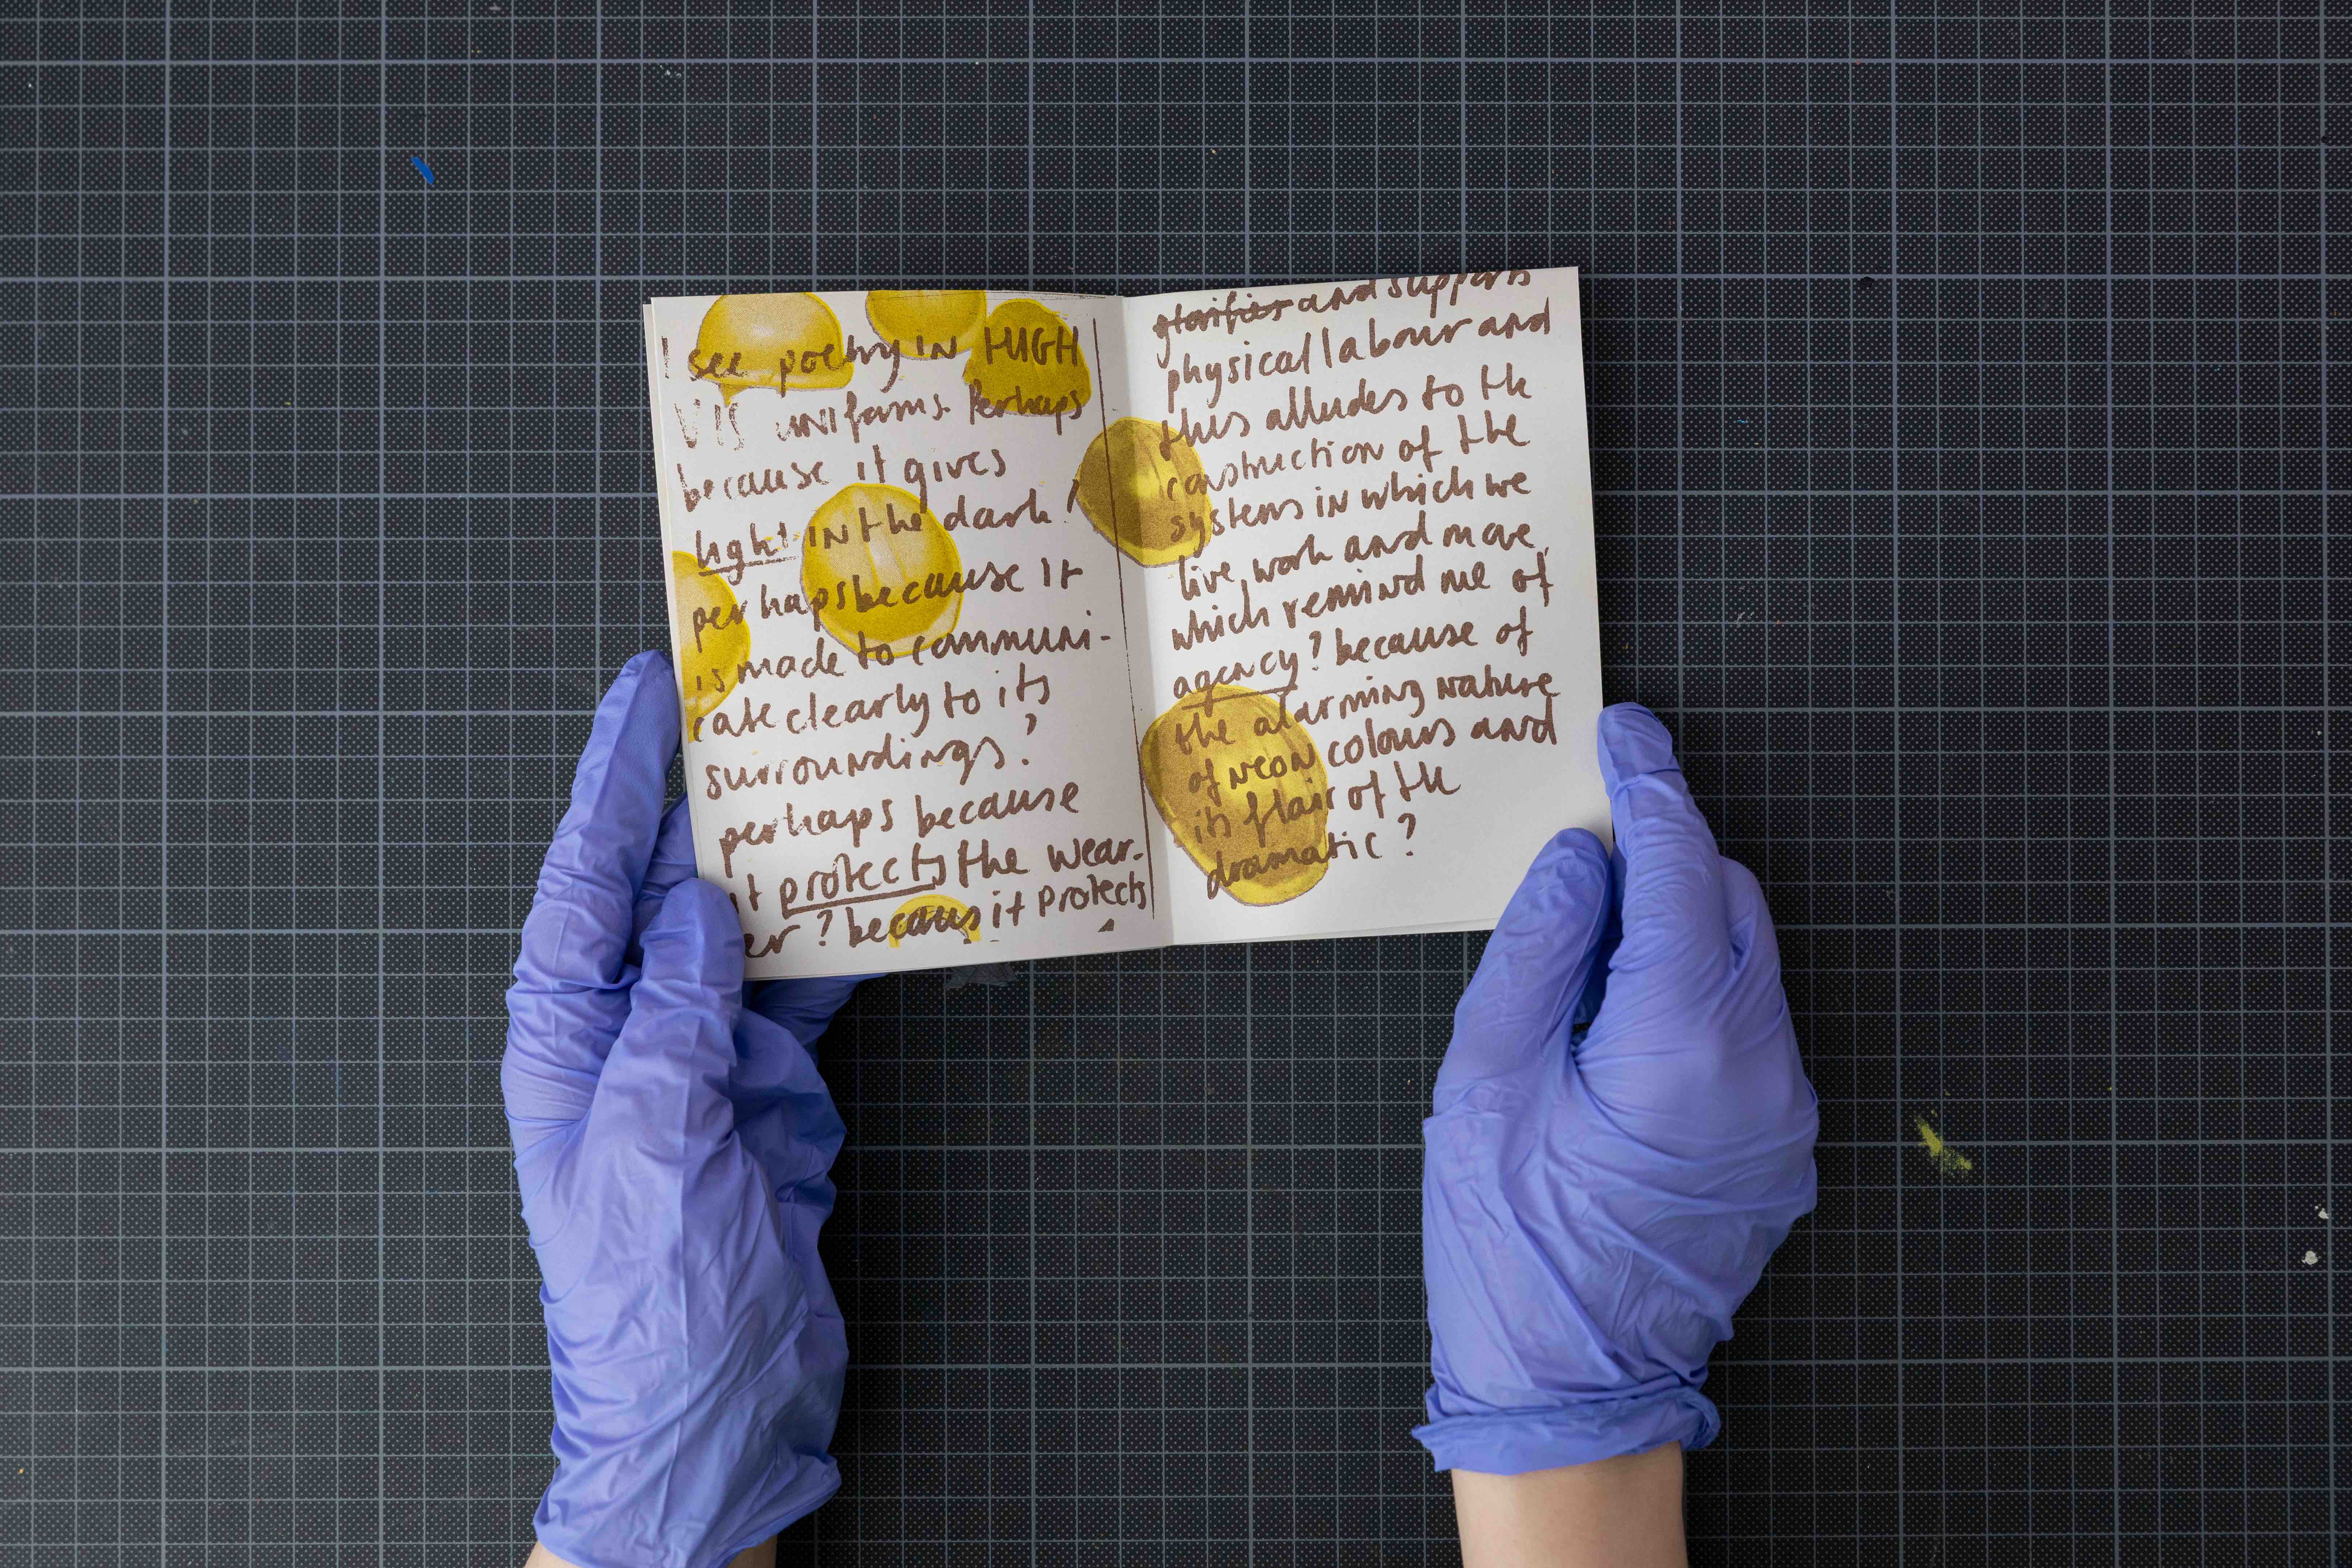 I see poetry IN HIGH
VIS UNIforms. Perhaps
because it gives
light IN the dark?
perhaps because it
is made to communi-
cate clearly to its
surroundings?
perhaps because
it protects the wear-
er? becaus it protects
glorifies and supports
physical labour and
this alludes to th
construction of the
systems in which we
live, work and move,
which remind me of
agency? because of
the alarming nature
of neon colours and
its flair of the
dramatic?